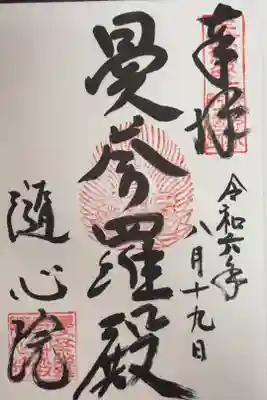 奉拝
令和六年
八月十九日
曼荼羅殿
随心院